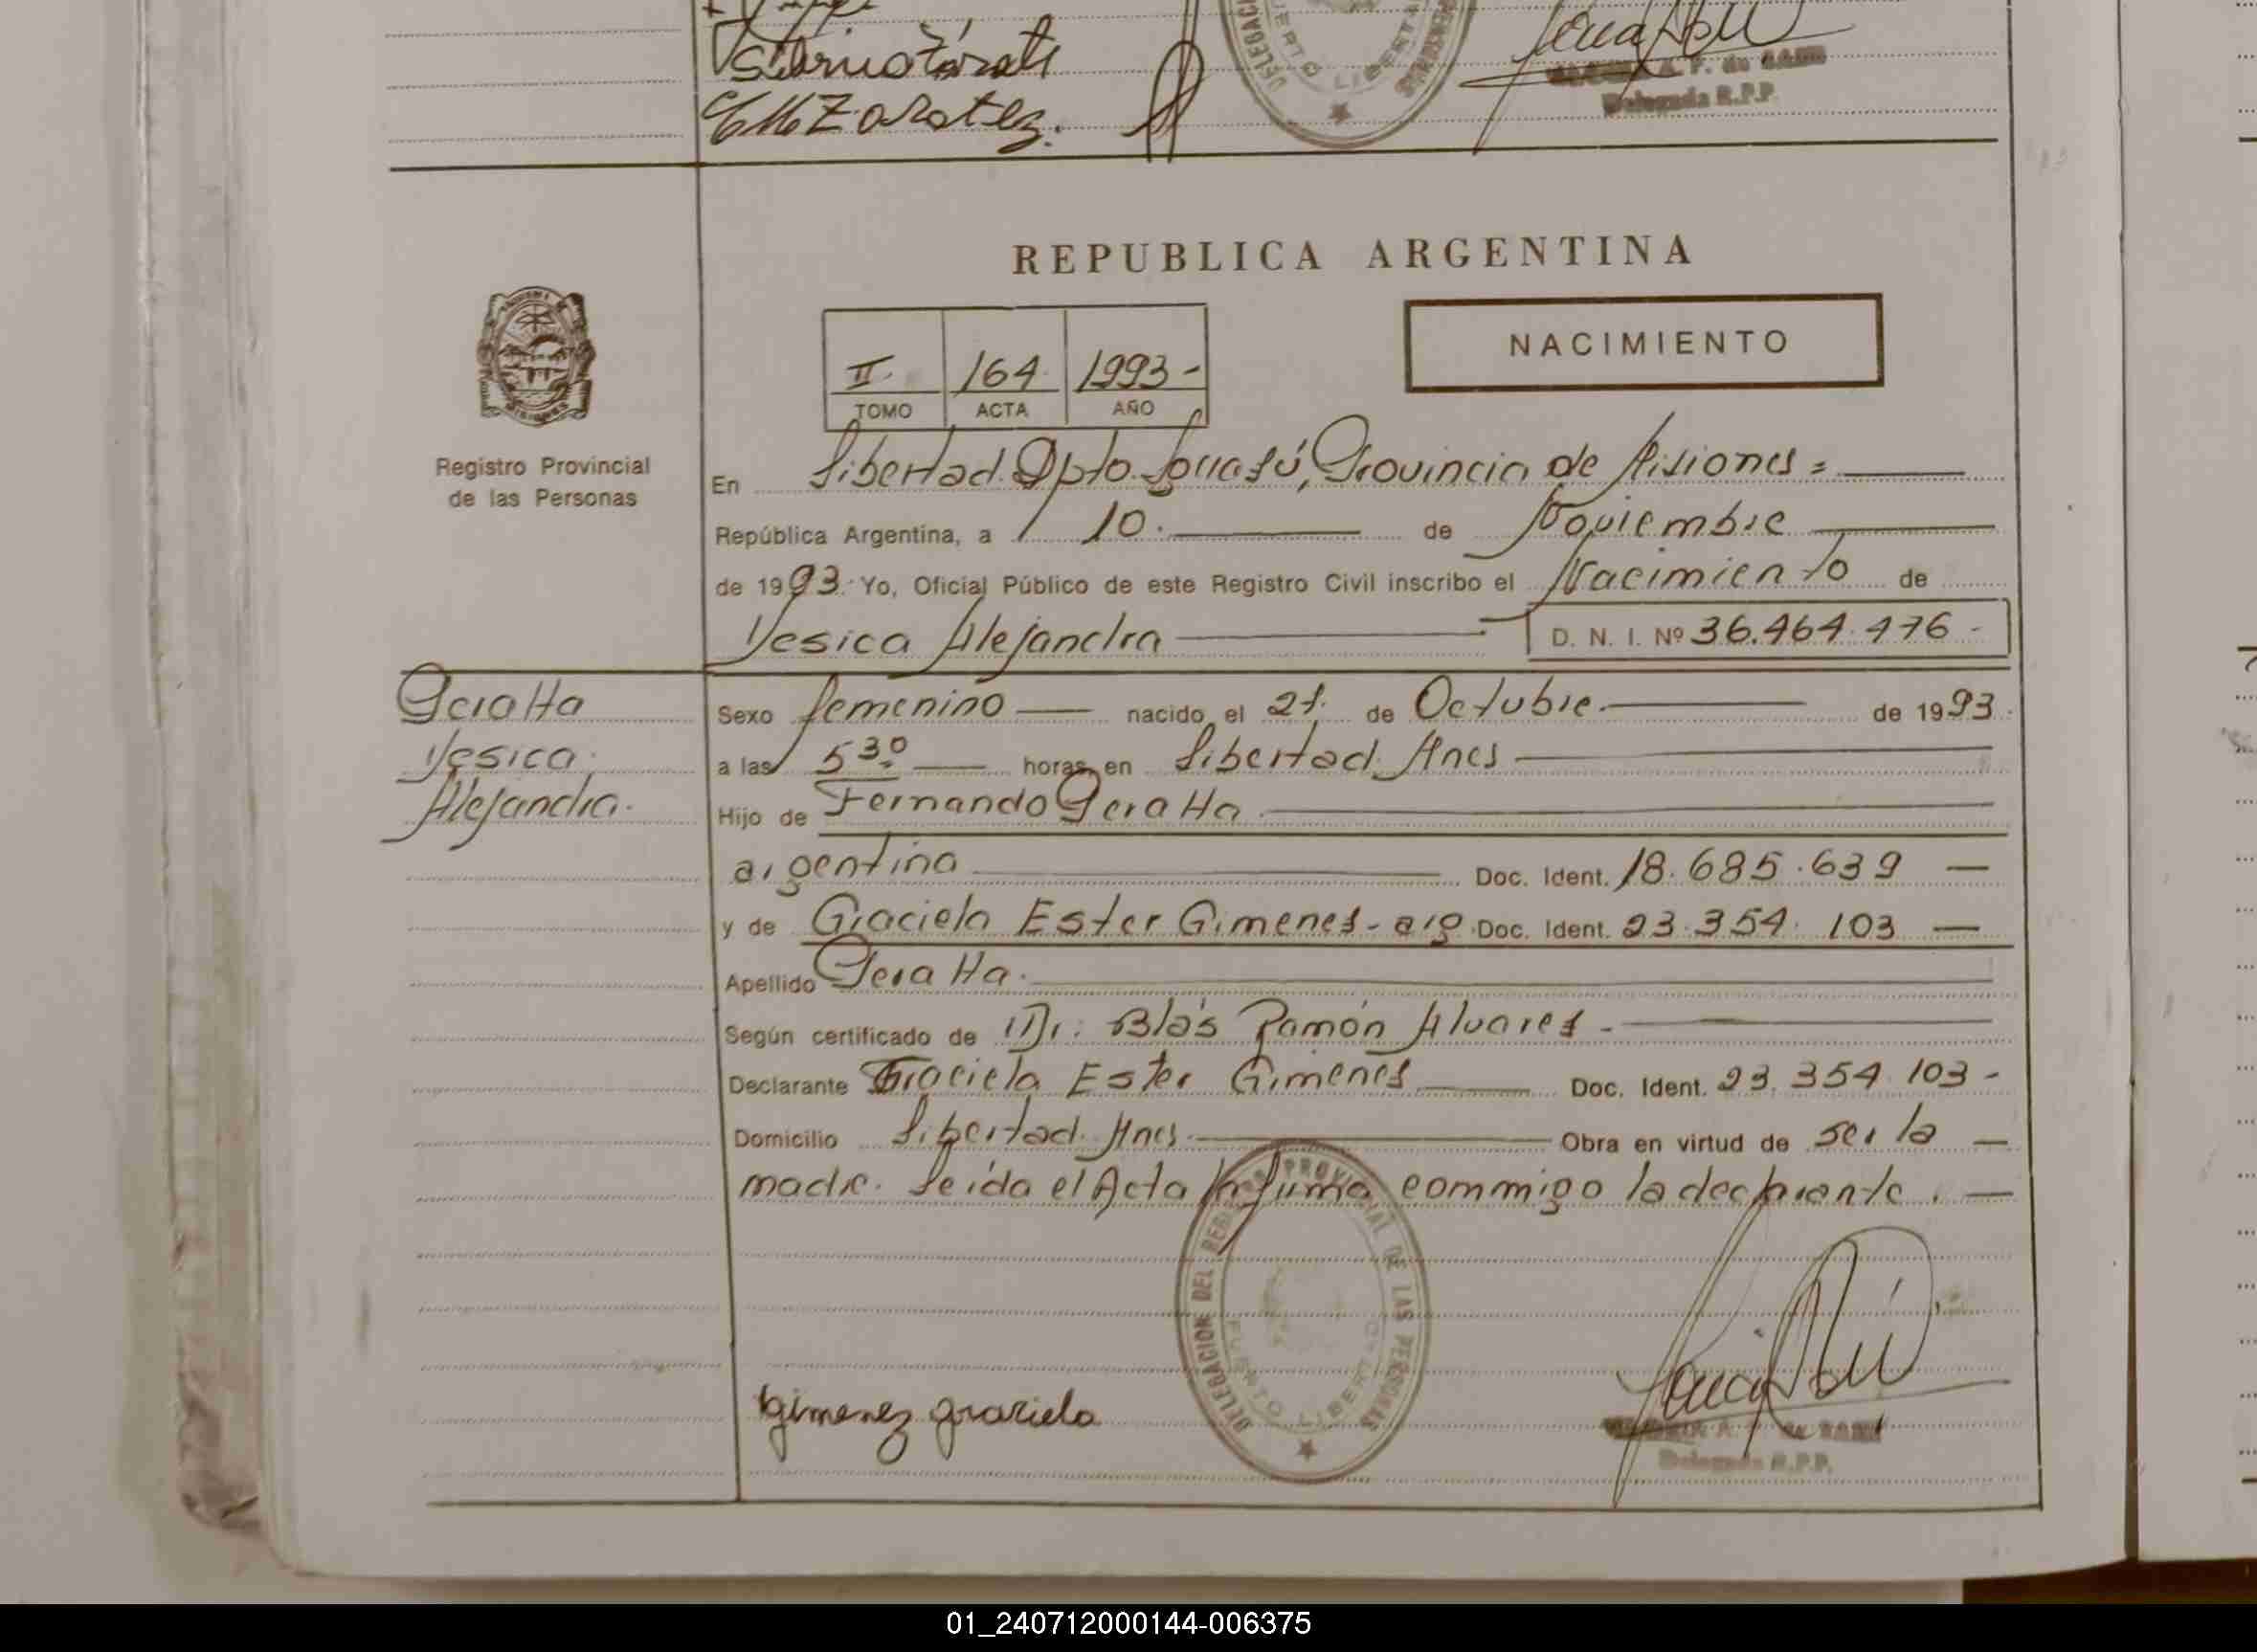 Zarate
Zarate
DELEGACI
PUERTO LIBERTAD
A. F. de
Delegada R.P.P.
REPUBLICA ARGENTINA
NACIMIENTO
II 164 1993 -
TOMO ACTA AÑO
Registro Provincial
de las Personas
En Libertad Dpto. Iguazú, Provincia de Misiones =
República Argentina, a 10. de Noviembre
de 1993. Yo, Oficial Público de este Registro Civil inscribo el Nacimiento de
Yesica Alejandra D. N. I. Nº 36.464.476 -
Peralta
Yesica
Alejandra.
Sexo femenino nacido el 21. de Octubre. de 1993.
a las 5 30 horas en Libertad Mnes
Hijo de Fernando Peralta
argentino Doc. Ident. 18.685.639 —
y de Graciela Ester Gimenez - arg. Doc. Ident. 23.354.103 —
Apellido Peralta.
Según certificado de Dr. Blás Ramón Alvarez -
Declarante Graciela Ester Gimenez Doc. Ident. 23.354.103 -
Domicilio Libertad Mnes. Obra en virtud de ser la —
madre. Leída el Acta la firma commigo la declarante. —
DELEGACION DEL REGISTRO PROVINCIAL DE LAS PERSONAS
PUERTO LIBERTAD
Gimenez graciela
A. F. de
Delegada R.P.P.
01_240712000144-006375